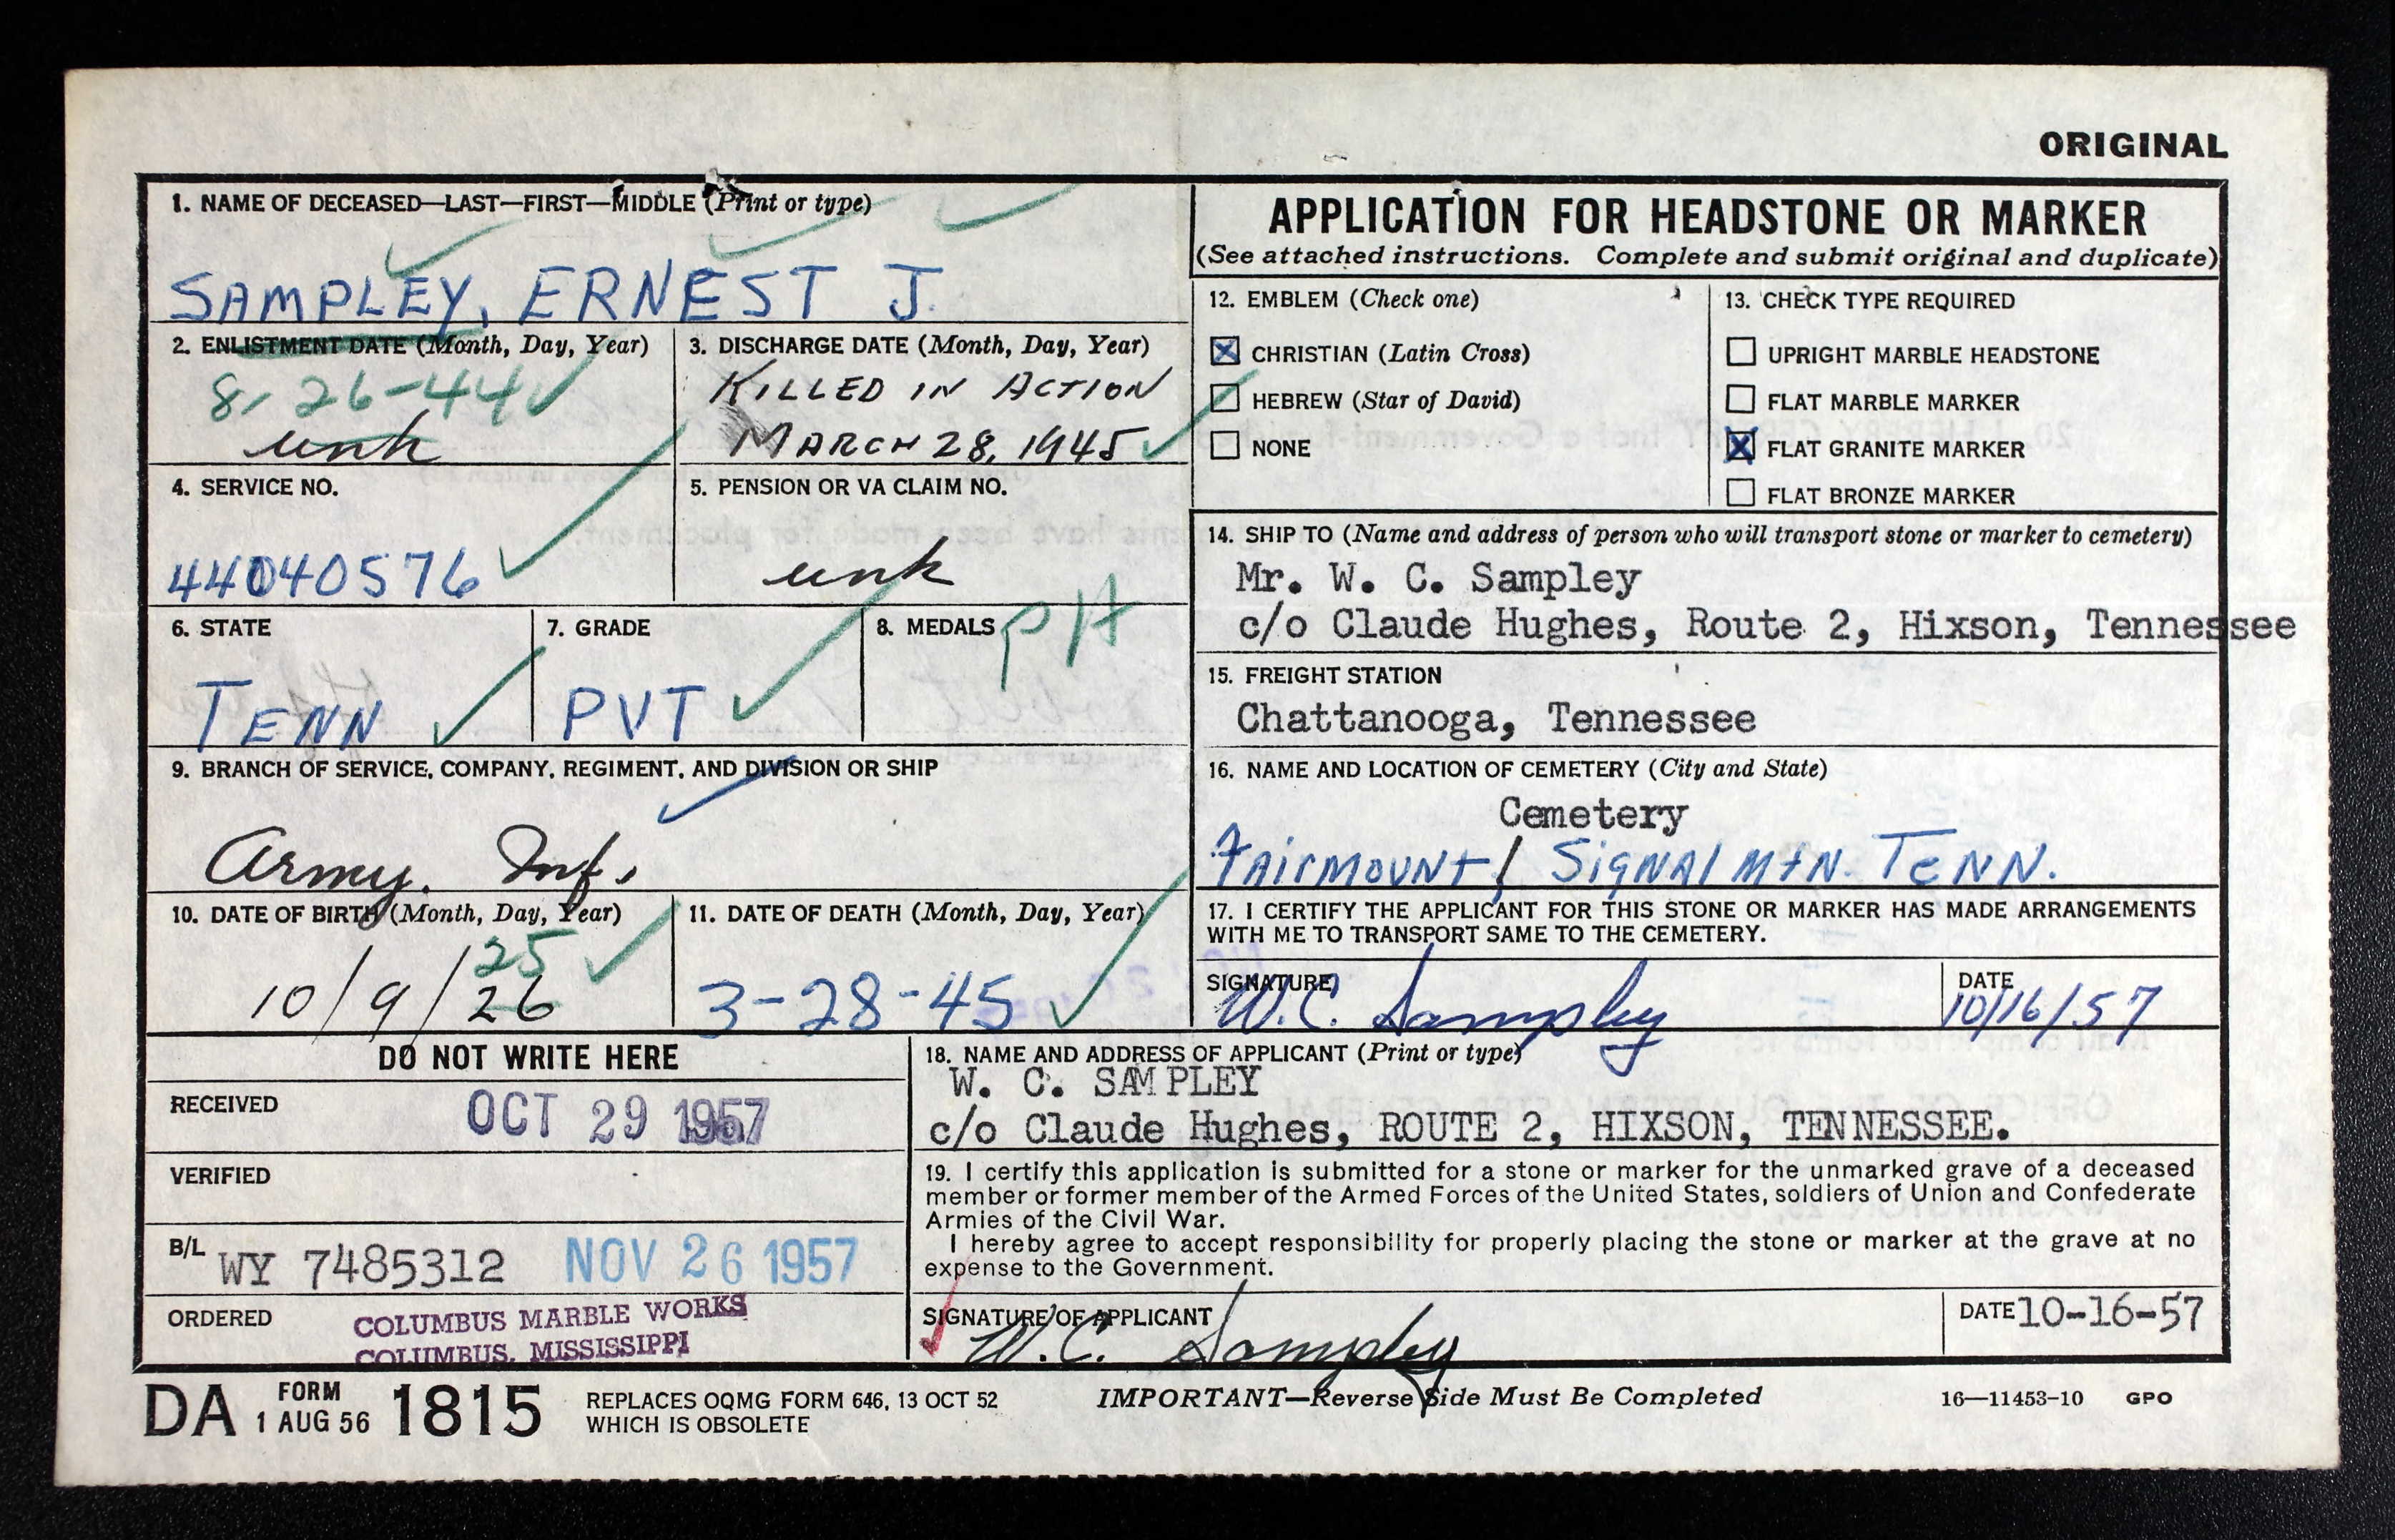 ORIGINAL
1. NAME OF DECEASED—LAST—FIRST—MIDDLE (Print or type)
SAMPLEY, ERNEST J.
2. ENLISTMENT DATE (Month, Day, Year)
8-26-44
unk
3. DISCHARGE DATE (Month, Day, Year)
KILLED IN ACTION
MARCH 28, 1945
4. SERVICE NO.
44040576
5. PENSION OR VA CLAIM NO.
unk
6. STATE
TENN
7. GRADE
PVT
8. MEDALS
PH
9. BRANCH OF SERVICE, COMPANY, REGIMENT, AND DIVISION OR SHIP
Army. Inf.
10. DATE OF BIRTH (Month, Day, Year)
25
10/9/26
11. DATE OF DEATH (Month, Day, Year)
3-28-45
APPLICATION FOR HEADSTONE OR MARKER
(See attached instructions. Complete and submit original and duplicate)
12. EMBLEM (Check one)
CHRISTIAN (Latin Cross)
HEBREW (Star of David)
NONE
13. CHECK TYPE REQUIRED
UPRIGHT MARBLE HEADSTONE
FLAT MARBLE MARKER
FLAT GRANITE MARKER
FLAT BRONZE MARKER
14. SHIP TO (Name and address of person who will transport stone or marker to cemetery)
Mr. W. C. Sampley
c/o Claude Hughes, Route 2, Hixson, Tennessee
15. FREIGHT STATION
Chattanooga, Tennessee
16. NAME AND LOCATION OF CEMETERY (City and State)
Cemetery
FAIrMOUNT/ SIGNAl MtN. TeNN.
17. I CERTIFY THE APPLICANT FOR THIS STONE OR MARKER HAS MADE ARRANGEMENTS
WITH ME TO TRANSPORT SAME TO THE CEMETERY.
SIGNATURE
W.C. Sampley
DATE
10/16/57
DO NOT WRITE HERE
RECEIVED
OCT 29 1957
VERIFIED
B/L WY 7485312 NOV 26 1957
ORDERED
COLUMBUS MARBLE WORKS
COLUMBUS, MISSISSIPPI
18. NAME AND ADDRESS OF APPLICANT (Print or type)
W. C. SAMPLEY
c/o Claude Hughes, ROUTE 2, HIXSON, TENNESSEE.
19. I certify this application is submitted for a stone or marker for the unmarked grave of a deceased
member or former member of the Armed Forces of the United States, soldiers of Union and Confederate
Armies of the Civil War.
I hereby agree to accept responsibility for properly placing the stone or marker at the grave at no
expense to the Government.
SIGNATURE OF APPLICANT
W.C. Sampley
DATE 10-16-57
DA FORM 1 AUG 56 1815
REPLACES OQMG FORM 646, 13 OCT 52
WHICH IS OBSOLETE
IMPORTANT—Reverse Side Must Be Completed
16—11453-10 GPO